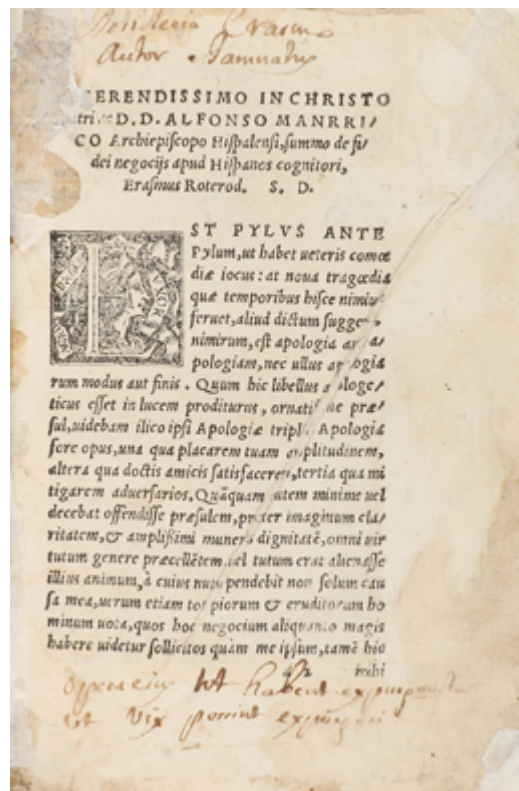 Erasmi
Autor damnatus
ERENDISSIMO IN CHRISTO
tri ac D. D. ALFONSO MANRRI/
CO Archiepiſcopo Hiſpalenſi, ſummo de fi/
dei negocijs apud Hiſpanos cognitori,
Eraſmus Roterod. S. D.
ST PYLVS ANTE
Pylum, ut habet ueteris comœ
diæ iocus: at noua tragœdia
quæ temporibus hiſce nimiũ
feruet, aliud dictum ſugge
nimirum, eſt apologia an a/
pologiam, nec ullus ap ogia
rum modus aut finis. Quum hic libellus a ologe/
ticus eſſet in lucem proditurus, ornati me præ/
ſul, uidebam ilico ipſi Apologiæ tripl Apologia
fore opus, una qua placarem tuam amplitudinem,
altera qua doctis amicis ſatisfacerem, tertia qua mi
tigarem aduerſarios. Quãquam autem minime uel
decebat offendiſſe præſulem, præter imaginum cla/
ritatem, & ampliſſimi muneris dignitatẽ, omni uir
tutum genere præcellẽtem, uel tutum erat alienaſſe
illius animum, à cuius nutu pendebit non ſolum cau
ſa mea, uerum etiam tot piorum & eruditorum ho
minum uota, quos hoc negocium aliquanto magis
habere uidetur ſollicitos quàm me ipſum, tamẽ hic
mihi
Opera eius tot habent expurganda
ut vix possint expurgari